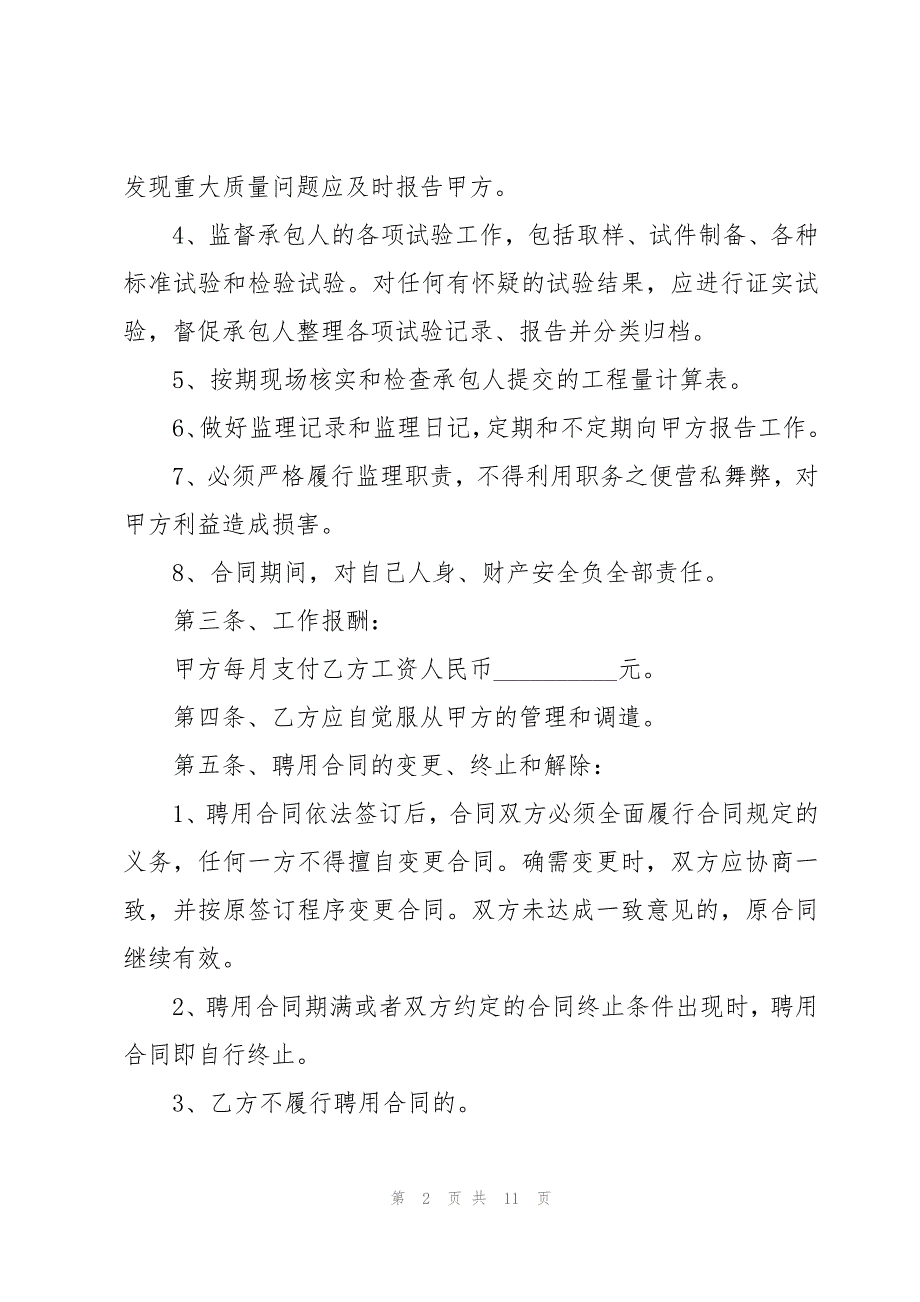 发现重大质量问题应及时报告甲方。
4、监督承包人的各项试验工作，包括取样、试件制备、各种
标准试验和检验试验。对任何有怀疑的试验结果，应进行证实试
验，督促承包人整理各项试验记录、报告并分类归档。
5、按期现场核实和检查承包人提交的工程量计算表。
6、做好监理记录和监理日记，定期和不定期向甲方报告工作。
7、必须严格履行监理职责，不得利用职务之便营私舞弊，对
甲方利益造成损害。
8、合同期间，对自己人身、财产安全负全部责任。
第三条、工作报酬：
甲方每月支付乙方工资人民币__________元。
第四条、乙方应自觉服从甲方的管理和调遣。
第五条、聘用合同的变更、终止和解除：
1、聘用合同依法签订后，合同双方必须全面履行合同规定的
义务，任何一方不得擅自变更合同。确需变更时，双方应协商一
致，并按原签订程序变更合同。双方未达成一致意见的，原合同
继续有效。
2、聘用合同期满或者双方约定的合同终止条件出现时，聘用
合同即自行终止。
3、乙方不履行聘用合同的。
第 2 页 共 11 页